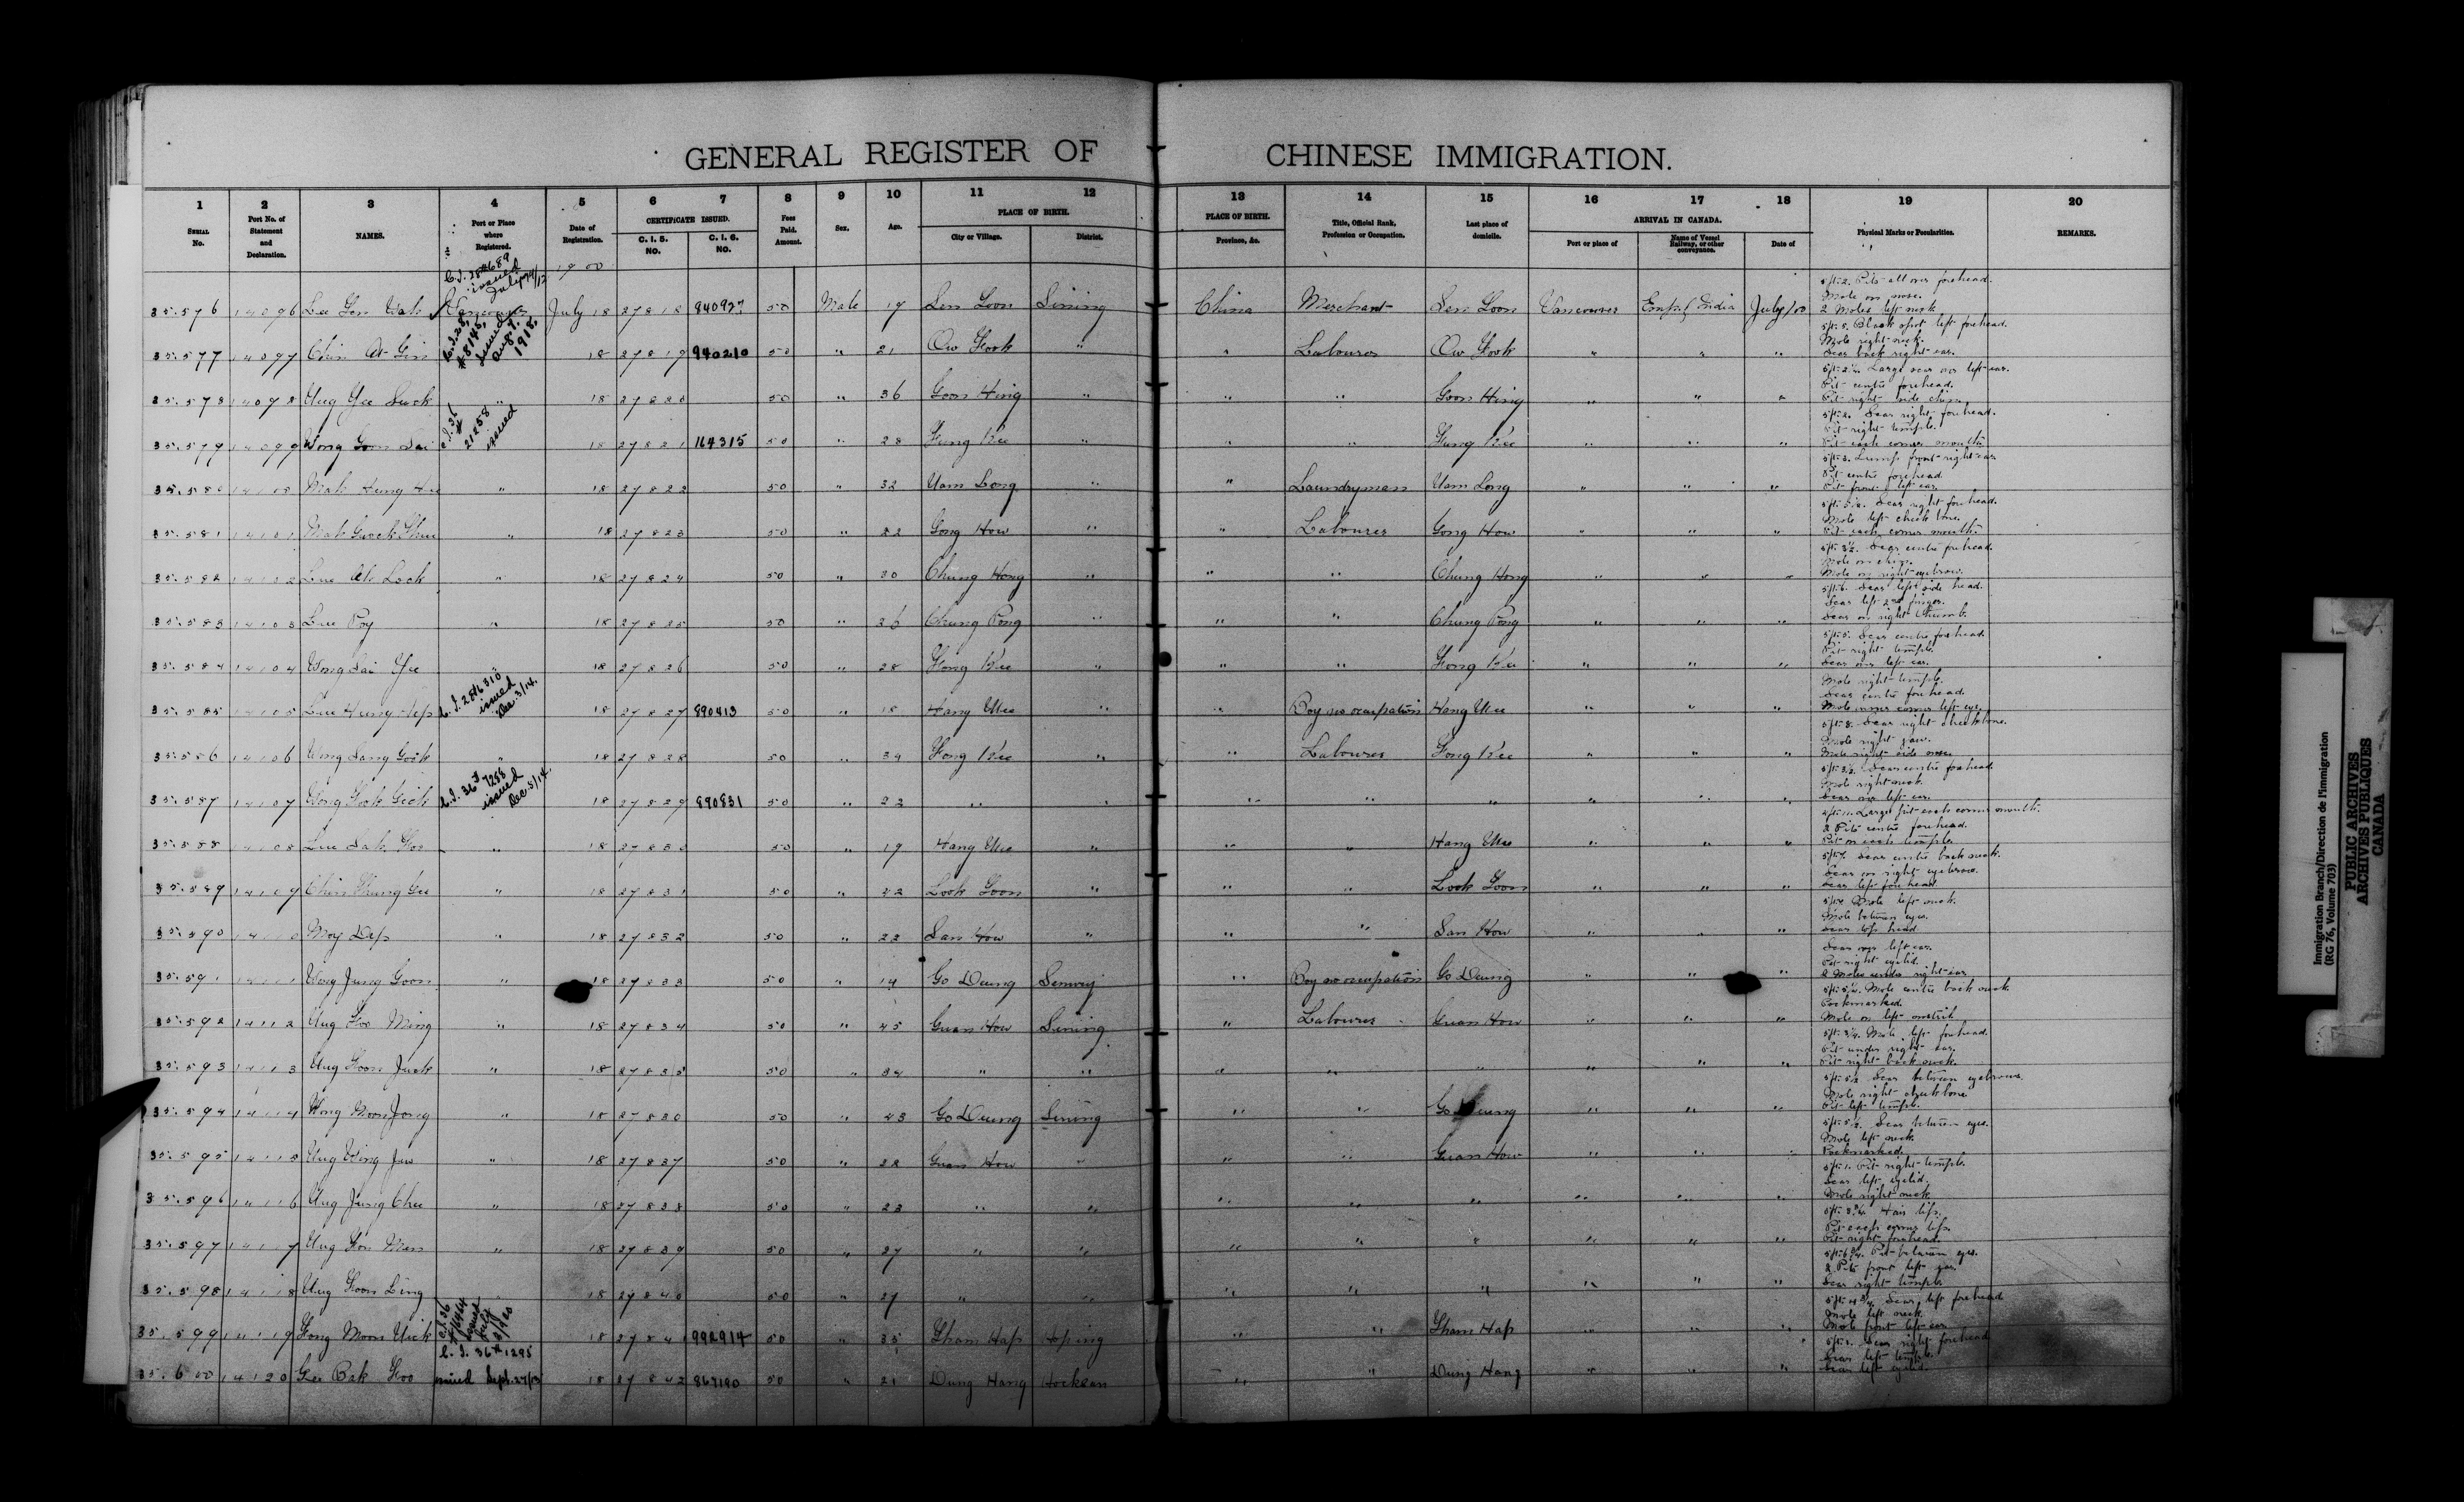 GENERAL REGISTER OF CHINESE IMMIGRATION.
1 2 3 4 5 6 7 8 9 10 11 12 13 14 15 16 17 18 19 20
SERIAL No. Port No. of Statement and Declaration. NAMES. Port or Place where Registered. Date of Registration. CERTIFICATE ISSUED. C. I. 5. NO. C. I. 6. NO. Fees Paid. Amount. Sex. Age. PLACE OF BIRTH. City or Village. District. PLACE OF BIRTH. Province, &c. Title, Official Rank, Profession or Occupation. Last place of domicile. ARRIVAL IN CANADA. Port or place of Name of Vessel Railway, or other conveyance. Date of Physical Marks or Peculiarities. REMARKS.
1900
35.576 14096 Lee Gon Wah Vancouver July 18 27818 50 Male 19 Sen Loon Sining China Merchant Sen Loon Vancouver Emp. of India July/00 Pits all over forehead. Mole on nose. 2 Moles left neck
35.577 14097 Chin Ah Gin C.I.28, #8145, issued Aug 7. 1918. 18 27819 940210 50 " 21 Ow Hook " " Labourer Ow Hook " " " 5ft. 5. Black spot left forehead. Mole right neck. Scar back right ear.
35.578 14098 Ung Yee Suck " 18 27820 50 " 36 Goon Hing " " " Goon Hing " " " Large scar over left ear. Pit centre forehead. Pit right side chin.
35.579 14099 Wong Goon Sai 21258 issued 18 27821 164315 50 " 28 Fung Kee " " " Fung Kee " " " 5ft. 2. Scar right forehead. Pit right temple. Pit each corner mouth
35.580 14100 Mah Hung " 18 27822 50 " 32 Uam Long " " Laundryman Uam Long " " " 5ft. 3. Lump front right ear. Pit centre forehead. Pit front left ear.
35.581 14101 Mah Guock " 18 27823 50 " 22 Gong How " " Labourer Gong How " " " Scar right forehead. Mole left cheek bone. Pit each corner mouth.
35.582 14102 Lee Ah Lock " 18 27824 50 " 30 Chung Hong " " " Chung Hong " " " Scar centre forehead. Mole on chin. Mole on right eyebrow.
35.583 14103 Lee Poy " 18 27825 50 " 26 Chung Pong " " " Chung Pong " " " 5ft. 6. Scar left side head. Scar left 2nd finger. Scar on right thumb.
35.584 14104 Wong Sai Yee " 18 27826 50 " 28 Fong Kee " " " Fong Kee " " " 5ft. 5. Scar centre forehead. Pit right temple. Scar over left ear.
35.585 14105 Lee Hung C.I. 28#6310 issued Dec. 3/14. 18 27827 890413 50 " 18 Hang Mee " " Boy no occupation Hang Mee " " " Mole right temple. Scar centre forehead. Mole inner corner left eye.
35.586 14106 Wong Sang Gook " 18 27828 50 " 39 Fong Kee " " Labourer Fong Kee " " " 5ft. 8. Scar right cheekbone. Mole right jaw. Mole right side nose.
35.587 14107 Wong Hook C.I. 36# 7288 issued Dec. 5/14. 18 27829 890831 50 " 22 " " " " " " " " Scar centre forehead. Mole right neck. Scar over left ear.
35.588 14108 Lee Sah " 18 27830 50 " 19 Hang Mee " " " Hang Mee " " " 4ft. 11. Large pit each corner mouth. 2 Pits centre forehead. Pit on each temple.
35.589 14109 Chin Thung " 18 27831 50 " 42 Look Loon " " " Look Loon " " " Scar centre back neck. Scar on right eyebrow. Scar left forehead.
35.590 14110 Moy Dep " 18 27832 50 " 22 San How " " " San How " " " Mole left neck. Mole between eyes. Scar top head
35.591 14111 Wong Jung Goon " 18 27833 50 " 14 Go Deung Sunwuy " Boy no occupation Go Deung " " Scar over left ear. Pit right eyelid. 2 Moles under right ear
35.592 14112 Ung Foo Ming " 18 27834 50 " 45 Guan How Sining " Labourer Guan How " " " Mole centre back neck. Pockmarked. Mole on left nostril
35.593 14113 Ung Hoon Juck " 18 27835 50 " 34 " " " " " " " " Mole left forehead. Pit under right ear. Pit right back neck.
35.594 14114 Wong Moon Jong " 18 27836 50 " 43 Go Deung Sining " " Go Deung " " " Scar between eyebrows. Mole right cheekbone. Pit left temple.
35.595 14115 Ung Wing Jew " 18 27837 50 " 22 Guan How " " " Guan How " " " Scar between eyes. Mole left neck. Pockmarked.
35.596 14116 Ung Jung Chee " 18 27838 50 " 23 " " " " " " " " 5ft. 1. Pit right temple. Scar left eyelid. Mole right neck
35.597 14117 Ung Hon Men " 18 27839 50 " 27 " " " " " " " " Hair lip. Pit each corner lips. Pit right forehead.
35.598 14118 Ung Hoon Ling " 18 27840 50 " 27 " " " " " " " " Pit between eyes. 2 Pits front left ear. Scar right temple
35.599 14119 Fong Moon Uick C.I. 36 issued 18 27841 992914 50 " 35 Sham Hap Hoping " " Sham Hap " " " Scar left forehead. Mole left neck. Mole front left ear
35.600 14120 Gee Bak Foo C. I. 36# 1295 issued Sept. 27/13 18 27842 867190 50 " 21 Dung Hang Hocksan " " Dung Hang " " " Scar right forehead. Scar left temple. Scar left eyelid.
Immigration Branch/Direction de l'immigration
(RG 76, Volume 703)
PUBLIC ARCHIVES
ARCHIVES PUBLIQUES
CANADA